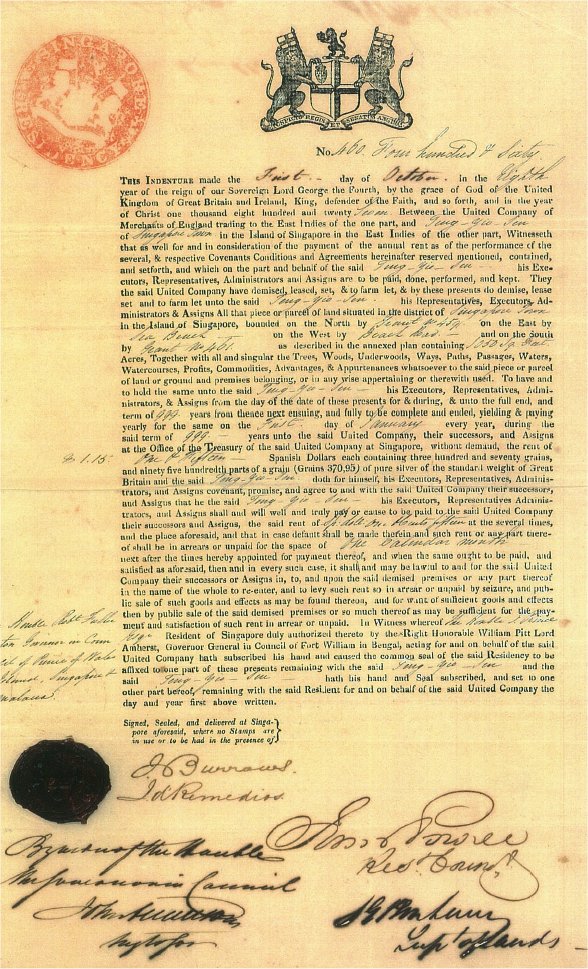 No. 460. Four hundred & Sixty
THIS INDENTURE made the First day of October in the Eighth
year of the reign of our Sovereign Lord George the Fourth, by the grace of God of the United
Kingdom of Great Britain and Ireland, King, defender of the Faith, and so forth, and in the year
of Christ one thousand eight hundred and twenty Seven Between the United Company of
Merchants of England trading to the East Indies of the one part, and
of Singapore Town in the Island of Singapore in the East Indies of the other part, Witnesseth
that as well for and in consideration of the payment of the annual rent as of the performance of the
several, & respective Covenants Conditions and Agreements hereinafter reserved mentioned, contained,
and setforth, and which on the part and behalf of the said his Exe-
cutors, Representatives, Administrators and Assigns are to be paid, done, performed, and kept. They
the said United Company have demised, leased, set, & to farm let, & by these presents do demise, lease
set and to farm let unto the said his Representatives, Executors, Ad-
ministrators & Assigns All that piece or parcel of land situated in the district of Singapore Town
in the Island of Singapore, bounded on the North by Grant No. on the East by
Sea Beach on the West by Beach Road and on the South
by Grant No. 461 as described in the annexed plan containing
Acres, Together with all and singular the Trees, Woods, Underwoods, Ways, Paths, Passages, Waters,
Watercourses, Profits, Commodities, Advantages, & Appurtenances whatsoever to the said piece or parcel
of land or ground and premises belonging, or in any wise appertaining or therewith used. To have and
to hold the same unto the said his Executors, Representatives, Admi-
nistrators, & Assigns from the day of the date of these presents for & during, & unto the full end, and
term of 999 years from thence next ensuing, and fully to be complete and ended, yielding & paying
yearly for the same on the First day of January every year, during the
said term of 999 years unto the said United Company, their successors, and Assigns
at the Office of the Treasury of the said United Company at Singapore, without demand, the rent of
Spanish Dollars each containing three hundred and seventy grains,
and ninety five hundredth parts of a grain (Grains 370,95) of pure silver of the standard weight of Great
Britain and the said doth for himself, his Executors, Representatives, Adminis-
trators, and Assigns covenant, promise, and agree to and with the said United Company their successors,
and Assigns that he the said his Executors, Representatives Adminis-
trators, and Assigns shall and will well and truly pay or cause to be paid to the said United Company
their successors and Assigns, the said rent of at the several times,
and the place aforesaid, and that in case default shall be made therein and such rent or any part there-
of shall be in arrears or unpaid for the space of One Calendar month
next after the times hereby appointed for payment thereof, and when the same ought to be paid, and
satisfied as aforesaid, then and in every such case, it shall and may be lawful to and for the said United
Company their successors or Assigns in, to, and upon the said demised premises or any part thereof
in the name of the whole to re-enter, and to levy such rent so in arrear or unpaid by seizure, and pub-
lic sale of such goods and effects as may be found thereon, and for want of sufficient goods and effects
then by public sale of the said demised premises or so much thereof as may be sufficient for the pay-
ment and satisfaction of such rent in arrear or unpaid. In Witness whereof The Honble J. Prince
Esqr. Resident of Singapore duly authorized thereto by the Right Honorable William Pitt Lord
Amherst, Governor General in Council of Fort William in Bengal, acting for and on behalf of the said
United Company hath subscribed his hand and caused the common seal of the said Residency to be
affixed to one part of these presents remaining with the said and the
said hath his hand and Seal subscribed, and set to one
other part hereof, remaining with the said Resident for and on behalf of the said United Company the
day and year first above written.
Signed, Sealed, and delivered at Singa-
pore aforesaid, where no Stamps are
in use or to be had in the presence of
J. Burrows.
J. d'Remedios
By order of the Honble
the Governor in Council
Supt. of Lands